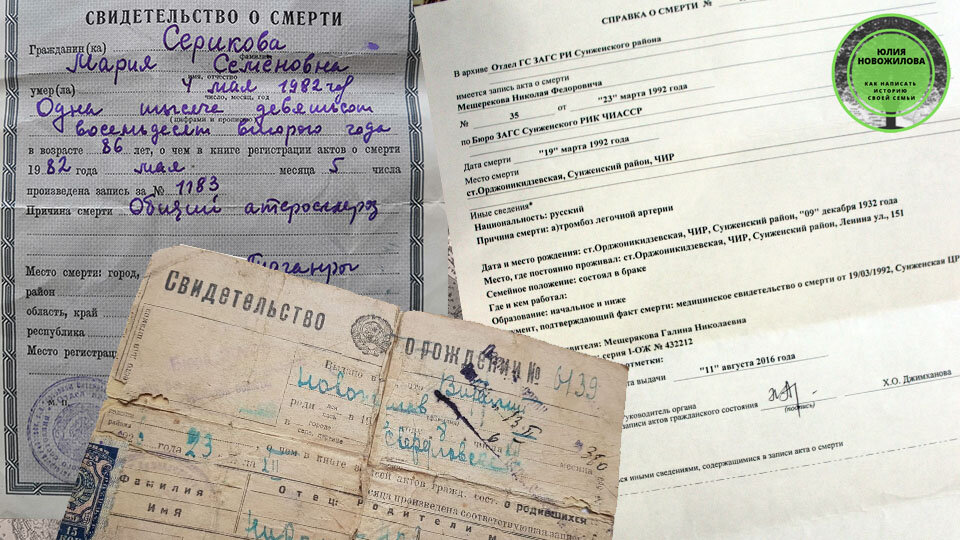 СВИДЕТЕЛЬСТВО О СМЕРТИ
Гражданин(ка) Серикова
фамилия
Мария Семёновна
имя, отчество
умер(ла) 4 мая 1982 год
число, месяц, год
Одна тысяча девятьсот
(цифрами и прописью)
восемьдесят второго года
в возрасте 86 лет, о чем в книге регистрации актов о смерти
1982 года мая месяца 5 числа
произведена запись за № 1183
Причина смерти Общий атеросклероз
Место смерти: город, Таганрог
район
область, край
республика
Место регистрац
СПРАВКА О СМЕРТИ №
В архиве Отдел ГС ЗАГС РИ Сунженского района
имеется запись акта о смерти
Мещерекова Николая Федоровича
№ 35 от "23" марта 1992
по Бюро ЗАГС Сунженского РИК ЧИАССР
Дата смерти "19" марта 1992 года
Место смерти
ст.Орджоникидзевская, Сунженский район, ЧИР
Иные сведения*
Национальность: русский
Причина смерти: а)тромбоз легочной артерии
Дата и место рождения: ст.Орджоникидзевская, ЧИР, Сунженский район, "09" декабря 1932 года
Место, где постоянно проживал: ст.Орджоникидзевская, ЧИР, Сунженский район, Ленина ул., 151
Семейное положение: состоял в браке
Где и кем работал:
Образование: начальное и ниже
мент, подтверждающий факт смерти: медицинское свидетельство о смерти от 19/03/1992, Сунженская ЦР
вителя: Мещерякова Галина Николаевна
серия 1-ОЖ № 432212
отметки:
та выдачи "11" августа 2016 года
уководитель органа
записи актов гражданского состояния
(подпись)
Х.О. Джимханова
ся иными сведениями, содержащимися в записи акта о смерти
ЮЛИЯ
НОВОЖИЛОВА
КАК НАПИСАТЬ
ИСТОРИЮ
СВОЕЙ СЕМЬИ
Свидетельство
о рождении № 6139
Выдано в
года 23
о чем в книге за
сей актов гражд. сост. о родившихся
сяца произведена соответствующая запи
родители
Фамилия
Имя
Отец:
15